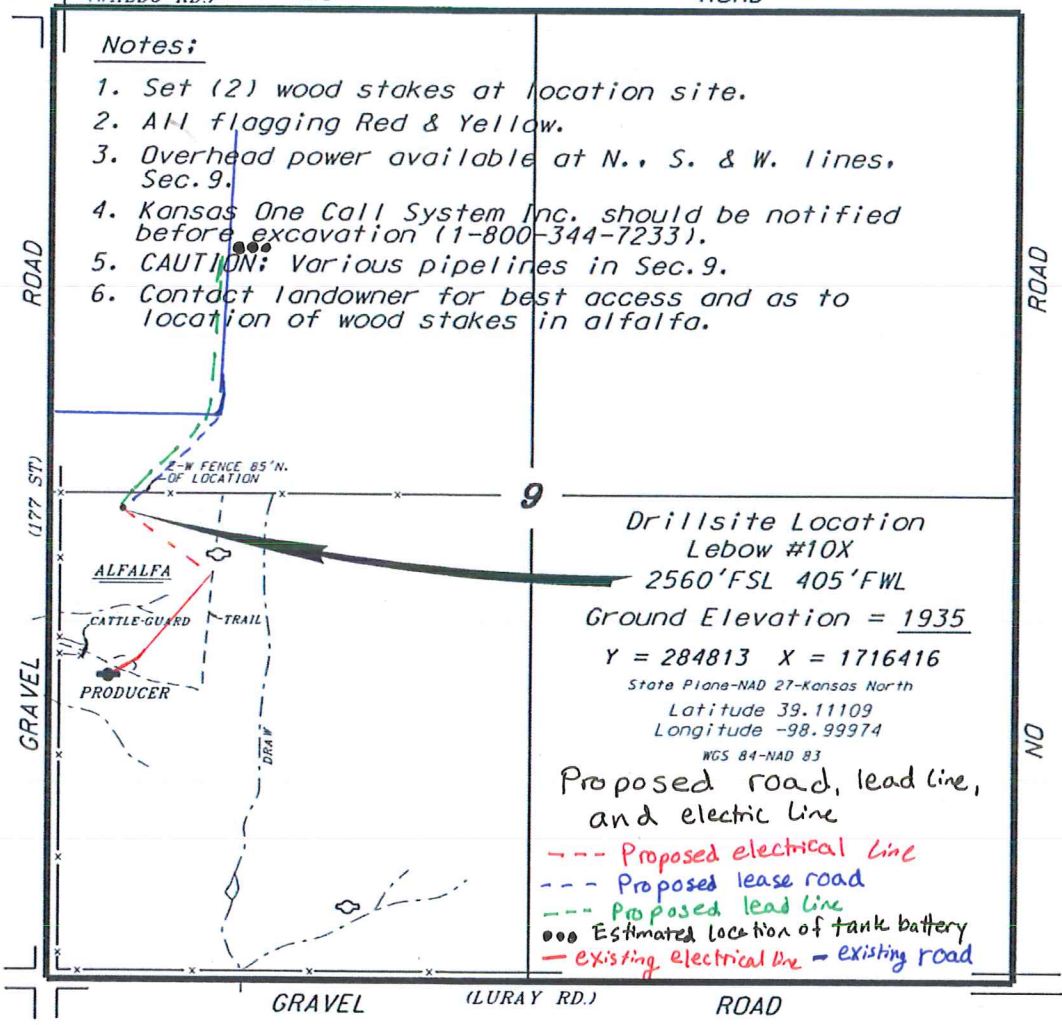 Notes:
1. Set (2) wood stakes at location site.
2. All flagging Red & Yellow.
3. Overhead power available at N., S. & W. lines,
Sec. 9.
4. Kansas One Call System Inc. should be notified
before excavation (1-800-344-7233).
5. CAUTION: Various pipelines in Sec. 9.
6. Contact landowner for best access and as to
location of wood stakes in alfalfa.
ROAD
ROAD
(177 ST)
E-W FENCE 85'N.
OF LOCATION
9
Drillsite Location
Lebow #10X
2560'FSL 405'FWL
Ground Elevation = 1935
Y = 284813 X = 1716416
State Plane-NAD 27-Kansas North
Latitude 39.11109
Longitude -98.99974
WGS 84-NAD 83
ALFALFA
CATTLE-GUARD
TRAIL
PRODUCER
GRAVEL
DRAW
NO
Proposed road, lead line,
and electric line
--- Proposed electrical line
--- Proposed lease road
--- Proposed lead line
••• Estimated location of tank battery
- existing electrical line - existing road
GRAVEL (LURAY RD.) ROAD